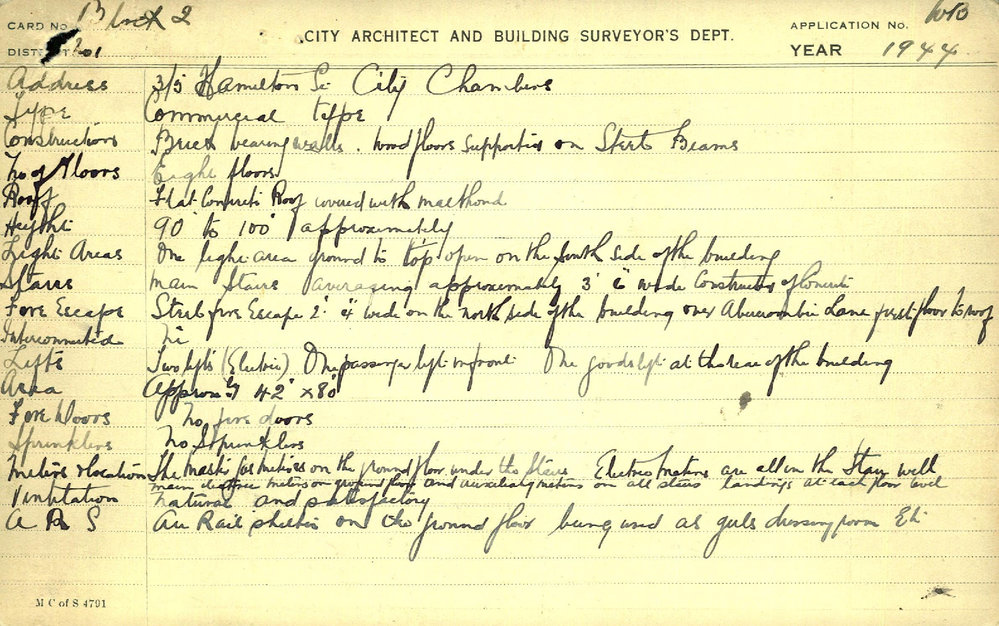 CARD No. Block 2
CITY ARCHITECT AND BUILDING SURVEYOR'S DEPT.
APPLICATION No.
DISTRICT 201
YEAR 1944
Address 3/5 Hamilton St City Chambers
Type Commercial type
Construction Brick bearing walls. Wood floors supported on Steel Beams
No of Floors Eight floors
Roof Flat Concrete Roof covered with malthoid
Height 90' to 100' approximately
Light Areas One light area ground to top open on the South side of the building
Stairs Main Stairs averaging approximately 3' 6" wide Constructed of Concrete
Fire Escape Steel fire Escape 2' 4" wide on the north side of the building over Abercrombie Lane first floor to roof
Interconnected
Lifts Two lifts (Electric) One passenger lift in front One goods lift at the rear of the building
Area Approx 42' x 80'
Fire Doors No fire doors
Sprinklers No Sprinklers
Meters & location The Master Gas Meters on the ground floor under the Stairs Electric Meters are all in the Stair well
main electric meters on ground floor and auxiliary meters on all stairs landings at each floor level
Ventilation natural and satisfactory
A R S Air Raid shelter on the ground floor being used as girls dressing room Etc
M C of S 4791